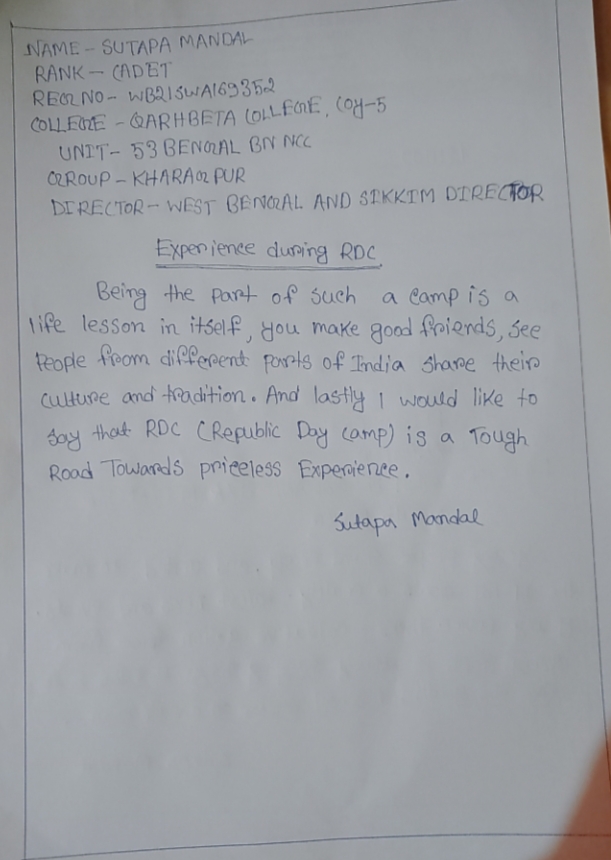 NAME - SUTAPA MANDAL
RANK - CADET
REG NO - WB21SWA169352
COLLEGE - GARHBETA COLLEGE, COY-5
UNIT - 53 BENGAL BN NCC
GROUP - KHARAGPUR
DIRECTOR - WEST BENGAL AND SIKKIM DIRECTOR
Experience during RDC
Being the part of such a camp is a
life lesson in itself, you make good friends, see
People from different parts of India share their
culture and tradition. And lastly I would like to
say that RDC (Republic Day Camp) is a Tough
Road Towards priceless Experience.
Sutapa Mandal